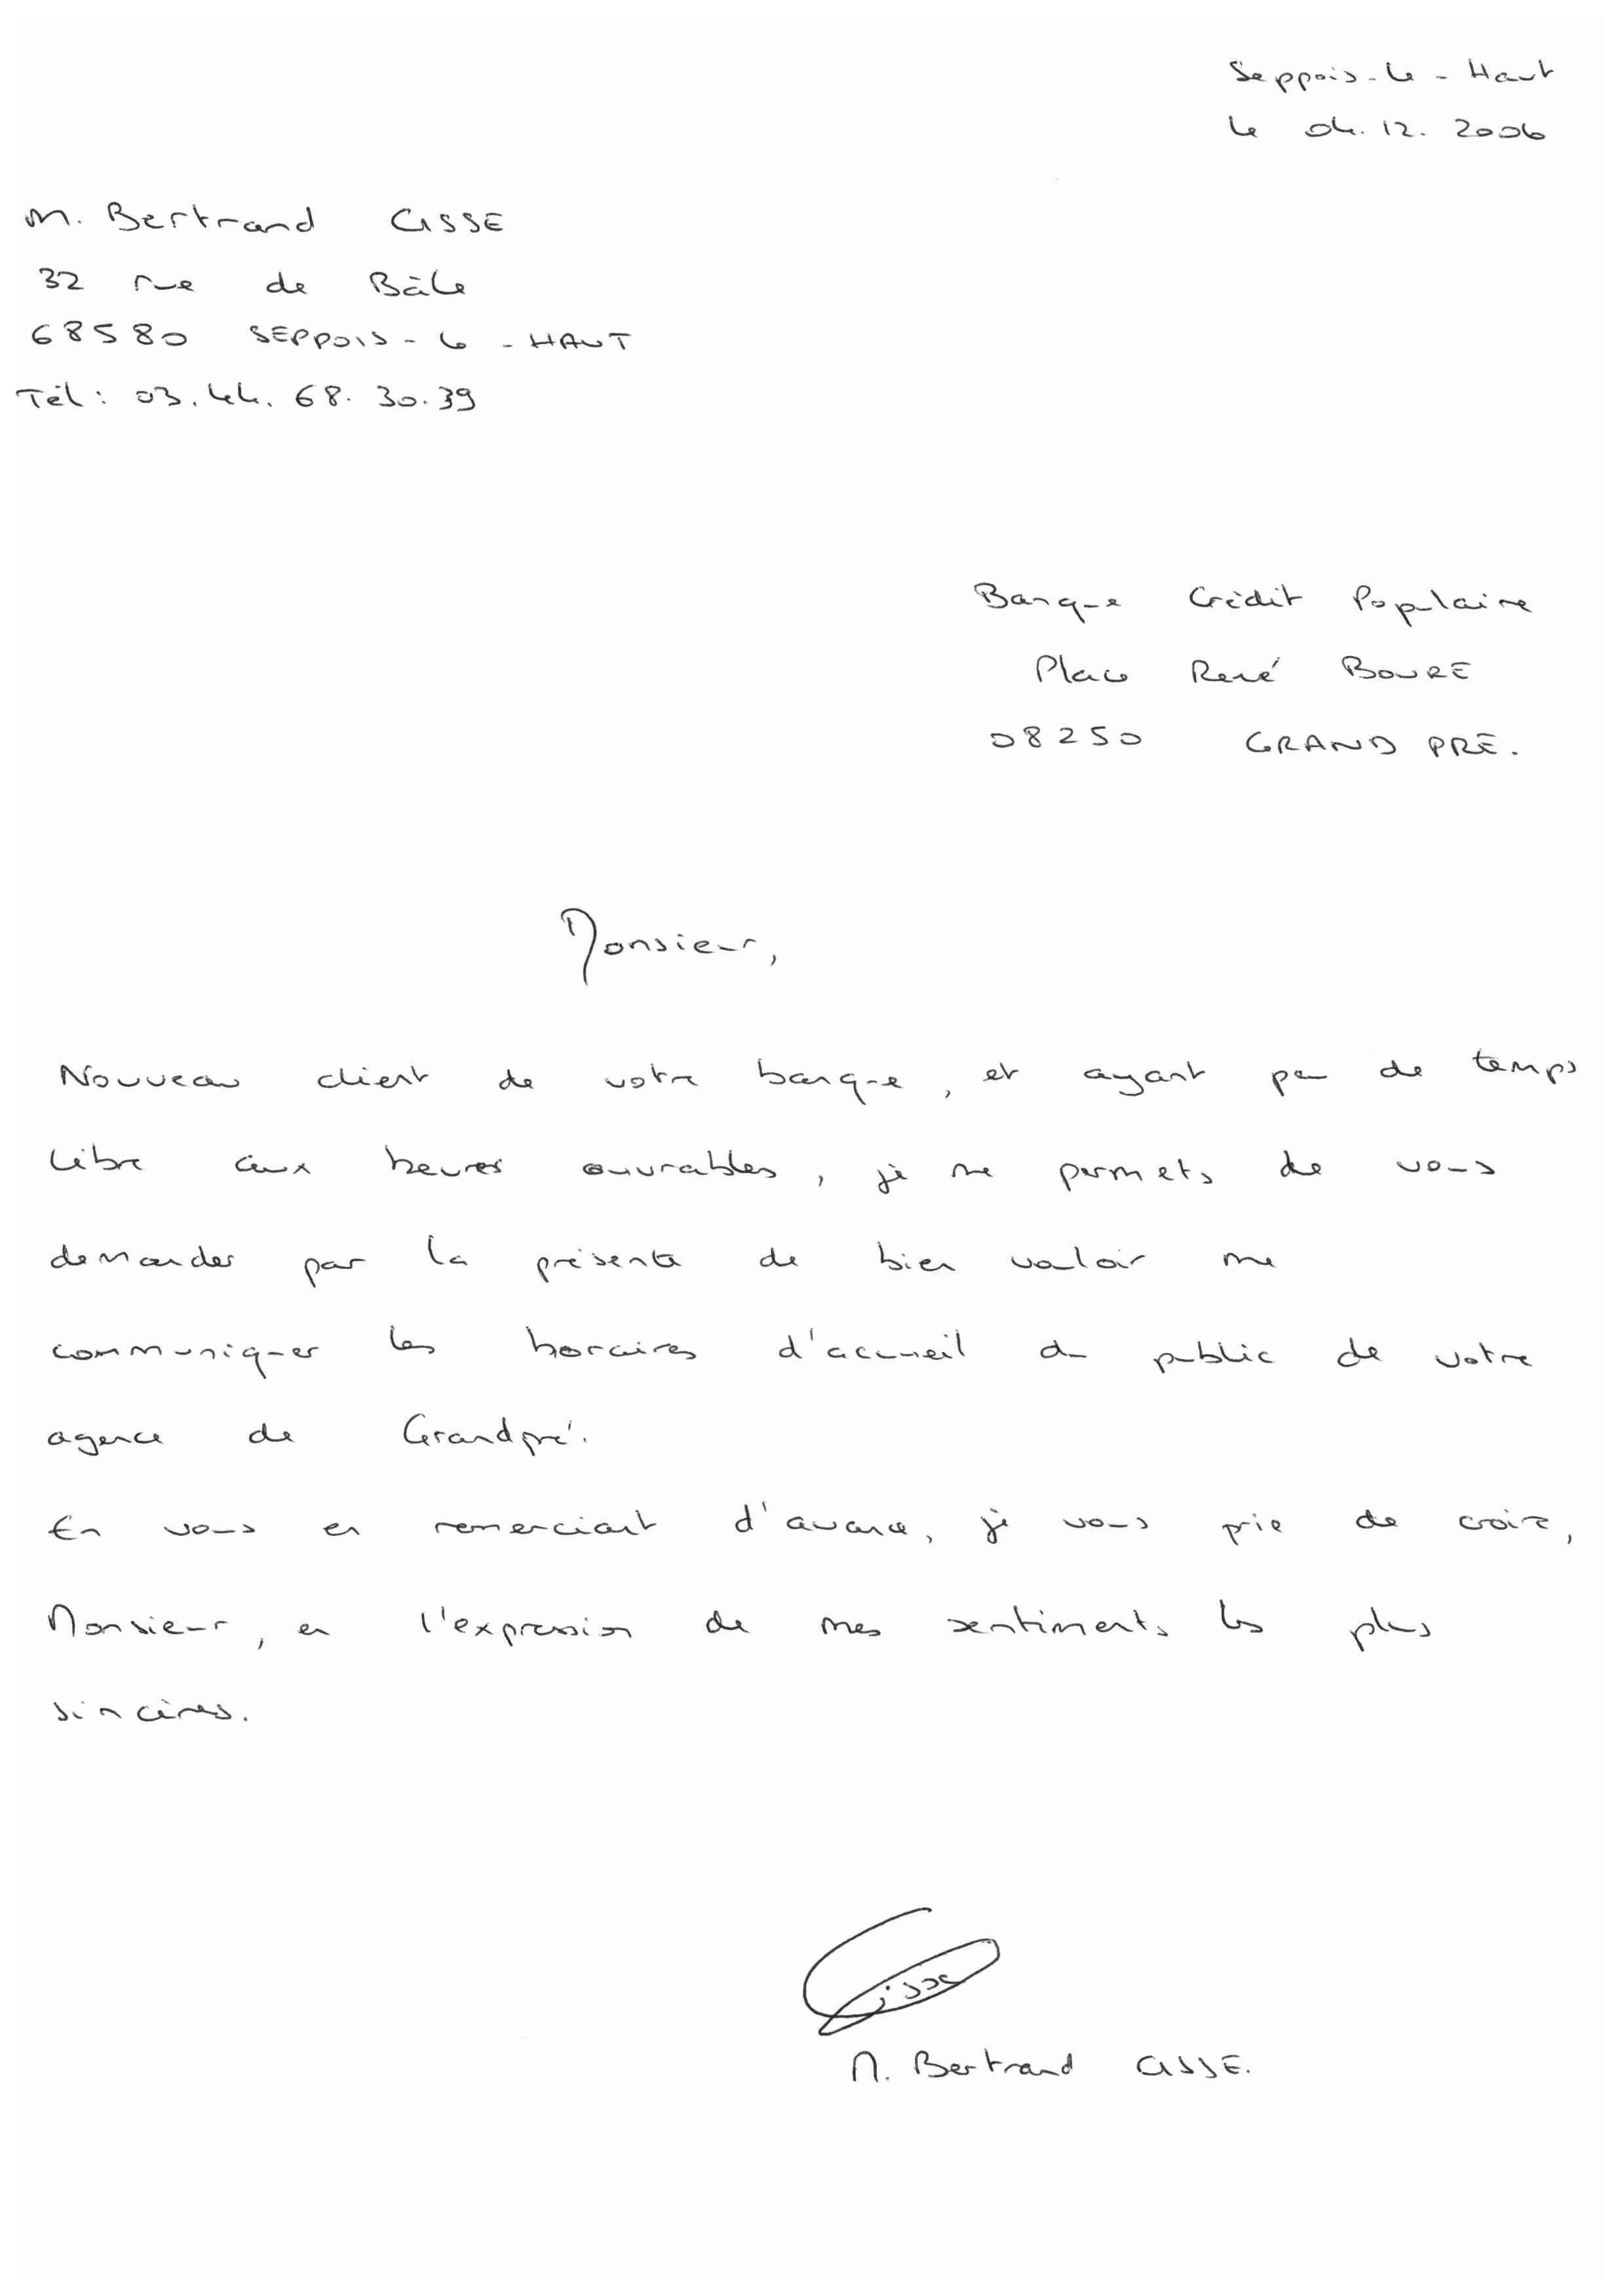 Seppois-le-Haut
le 04.12.2006
M. Bertrand CISSE
32 rue de Bâle
68580 SEPPOIS-le-HAUT
Tél: 03.44.68.30.39
Banque Crédit Populaire
Place René BOURE
08250 GRAND PRE.
Monsieur,
Nouveau client de votre banque, et ayant peu de temps
libre aux heures ouvrables, je me permets de vous
demander par la présente de bien vouloir me
communiquer les horaires d'accueil du public de votre
agence de Grandpré.
En vous en remerciant d'avance, je vous prie de croire,
Monsieur, en l'expression de mes sentiments les plus
sincères.
Cisse
M. Bertrand CISSE.